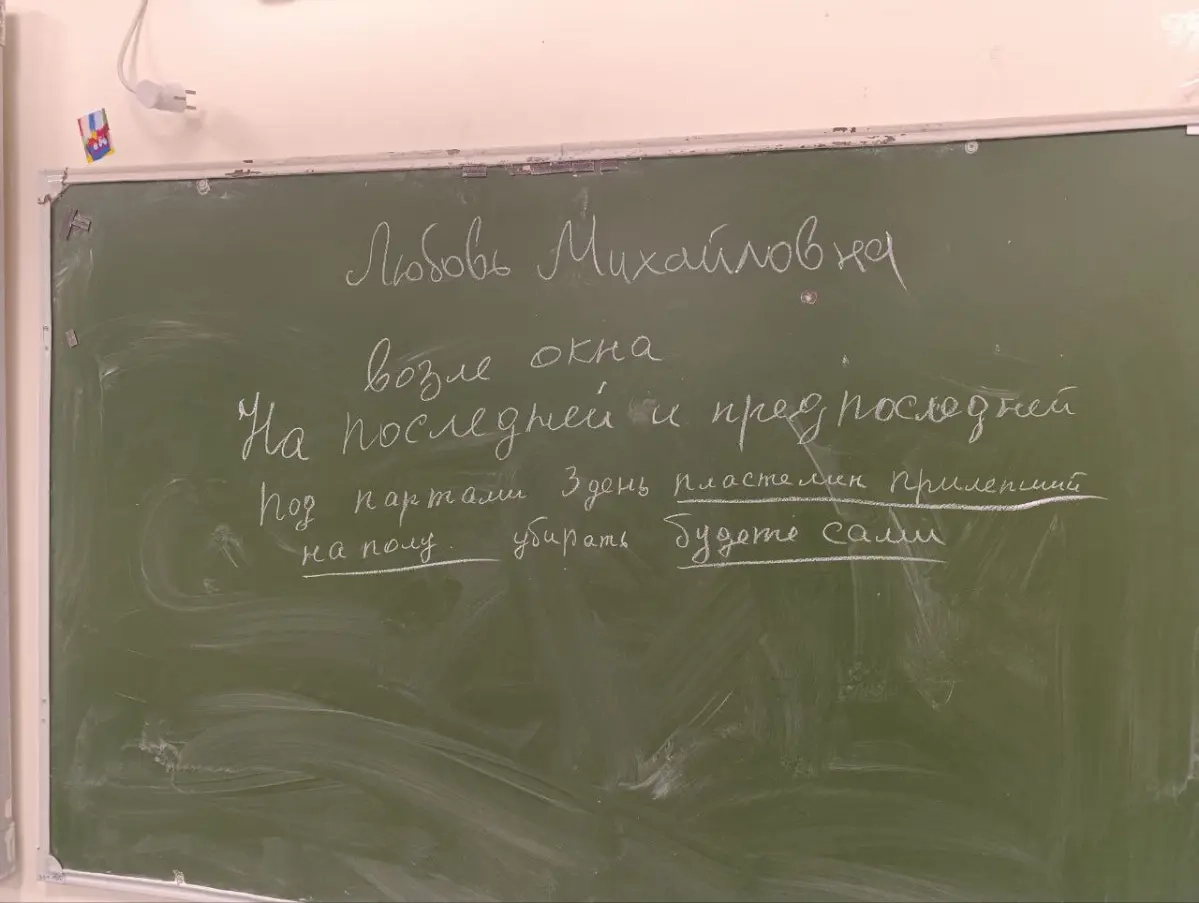 Любовь Михайловна
возле окна
На последней и предпоследней
под партами 3 день пластелин прилепший
на полу. убирать будете сами